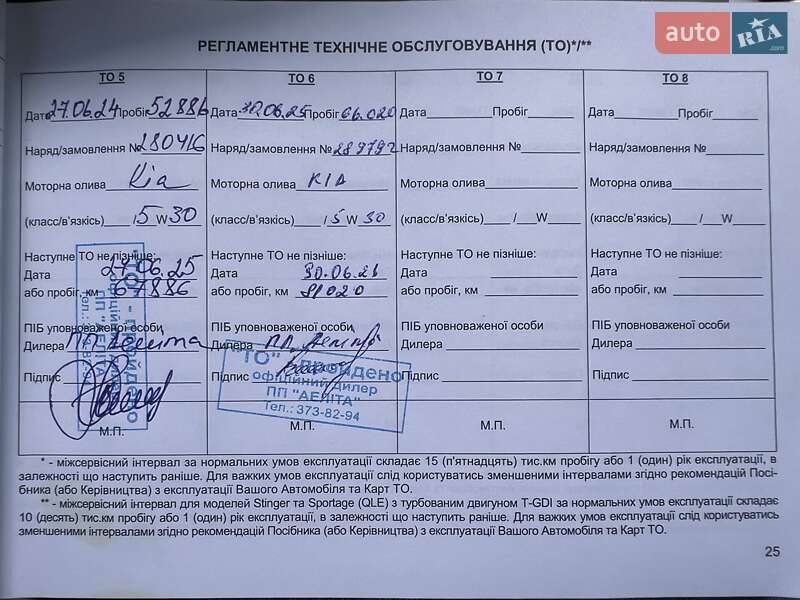 auto RIA .com
РЕГЛАМЕНТНЕ ТЕХНІЧНЕ ОБСЛУГОВУВАННЯ (ТО)*/**
ТО 5 ТО 6 ТО 7 ТО 8
Дата 27.06.24 Пробіг 52886 Дата 30.06.25 Пробіг 66.020 Дата Пробіг Дата Пробіг
Наряд/замовлення № 280416 Наряд/замовлення № 289792 Наряд/замовлення № Наряд/замовлення №
Моторна олива Kia Моторна олива KIA Моторна олива Моторна олива
(класс/в'язкісь) / 5 W 30 (класс/в'язкісь) / 5 W 30 (класс/в'язкісь) / W (класс/в'язкісь) / W
Наступне ТО не пізніше: Наступне ТО не пізніше: Наступне ТО не пізніше: Наступне ТО не пізніше:
Дата 27.06.25 Дата 30.06.26 Дата Дата
або пробіг, км 67886 або пробіг, км 81020 або пробіг, км або пробіг, км
ПІБ уповноваженої особи ПІБ уповноваженої особи ПІБ уповноваженої особи ПІБ уповноваженої особи
Дилера ПП Аеліта Дилера ПП Аеліта Дилера Дилера
Підпис Підпис Підпис Підпис
"ТО" - пройдено
офіційний дилер
ПП "АЕЛІТА"
Тел.: 373-82-94
М.П. М.П. М.П. М.П.
* - міжсервісний інтервал за нормальних умов експлуатації складає 15 (п'ятнадцять) тис.км пробігу або 1 (один) рік експлуатації, в
залежності що наступить раніше. Для важких умов експлуатації слід користуватись зменшеними інтервалами згідно рекомендацій Посі-
бника (або Керівництва) з експлуатації Вашого Автомобіля та Карт ТО.
** - міжсервісний інтервал для моделей Stinger та Sportage (QLE) з турбованим двигуном T-GDI за нормальних умов експлуатації складає
10 (десять) тис.км пробігу або 1 (один) рік експлуатації, в залежності що наступить раніше. Для важких умов експлуатації слід користуватись
зменшеними інтервалами згідно рекомендацій Посібника (або Керівництва) з експлуатації Вашого Автомобіля та Карт ТО.
25